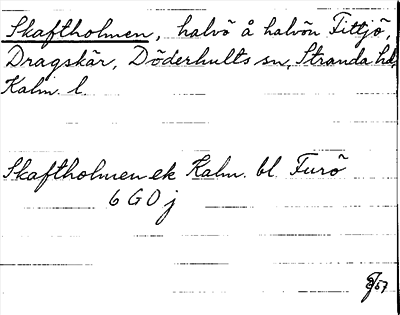 Skaftholmen, halvö å halvön Tittjö,
Dragskär, Döderhults sn, Stranda hd,
Kalm. l.
Skaftholmen ek Kalm. bl. Furö
6 G 0 j